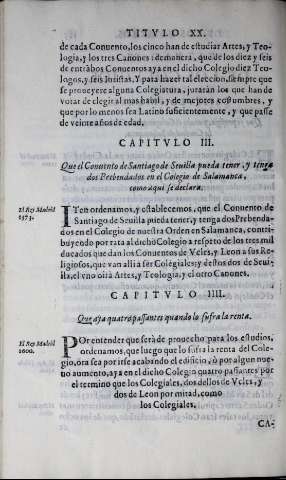 TITVLO XX.
de cada Conuento, los cinco han de estudiar Artes, y Teo-
logia, y los tres Canones: demanera, que de los diez y seis
de entrãbos Conuentos aya en el dicho Colegio diez Teo-
logos, y seis Iuristas. Y para hazer tal eleccion, siempre que
se proueyere alguna Colegiatura, juraràn los que han de
votar de elegir al mas habil, y de mejores costumbres, y
que por lo menos sea Latino suficientemente, y que passe
de veinte años de edad.
CAPITVLO III.
Que el Conuento de Santiago de Seuilla pueda tener, y tenga
dos Prebendados en el Colegio de Salamanca,
como aqui se declara.
El Rey Madrid
1573.
ITen ordenamos, y establecemos, que el Conuento de
Santiago de Seuilla pueda tener, y tenga dos Prebenda-
dos en el Colegio de nuestra Orden en Salamanca, contri-
buyendo por rata al dicho Colegio a respeto de los tres mil
ducados que dan los Conuentos de Vcles, y Leon a sus Re-
ligiosos, que van alli a ser Colegiales; y destos dos de Seui-
lla, el vno oirà Artes, y Teologia, y el otro Canones.
CAPITVLO IIII.
Que aya quatro passantes quando lo sufra la renta.
El Rey Madrid
1600.
POr entender que serà de prouecho para los estudios,
ordenamos, que luego que lo sufra la renta del Cole-
gio, ora sea por irse acabando el edificio, ò por algun nue-
uo aumento, aya en el dicho Colegio quatro passantes por
el termino que los Colegiales, dos dellos de Vcles, y
dos de Leon por mitad, como
los Colegiales.
CA-